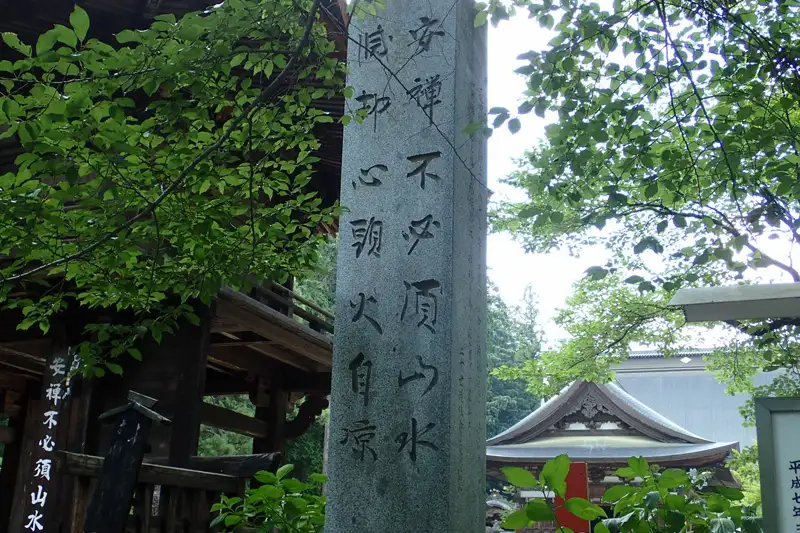 安禅不必須山水
滅却心頭火自涼
安禅不必須山水
平成七年